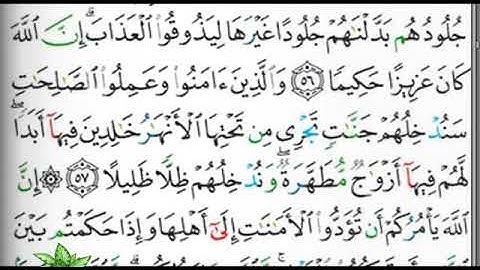 جُلُودُهُم بَدَّلْنَٰهُمْ جُلُودًا غَيْرَهَا لِيَذُوقُوا۟ ٱلْعَذَابَ ۗ إِنَّ ٱللَّهَ
كَانَ عَزِيزًا حَكِيمًا ٥٦ وَٱلَّذِينَ ءَامَنُوا۟ وَعَمِلُوا۟ ٱلصَّٰلِحَٰتِ
سَنُدْخِلُهُمْ جَنَّٰتٍ تَجْرِى مِن تَحْتِهَا ٱلْأَنْهَٰرُ خَٰلِدِينَ فِيهَآ أَبَدًا ۖ
لَّهُمْ فِيهَآ أَزْوَٰجٌ مُّطَهَّرَةٌ ۖ وَنُدْخِلُهُمْ ظِلًّا ظَلِيلًا ٥٧ إِنَّ
ٱللَّهَ يَأْمُرُكُمْ أَن تُؤَدُّوا۟ ٱلْأَمَٰنَٰتِ إِلَىٰٓ أَهْلِهَا وَإِذَا حَكَمْتُم بَيْنَ